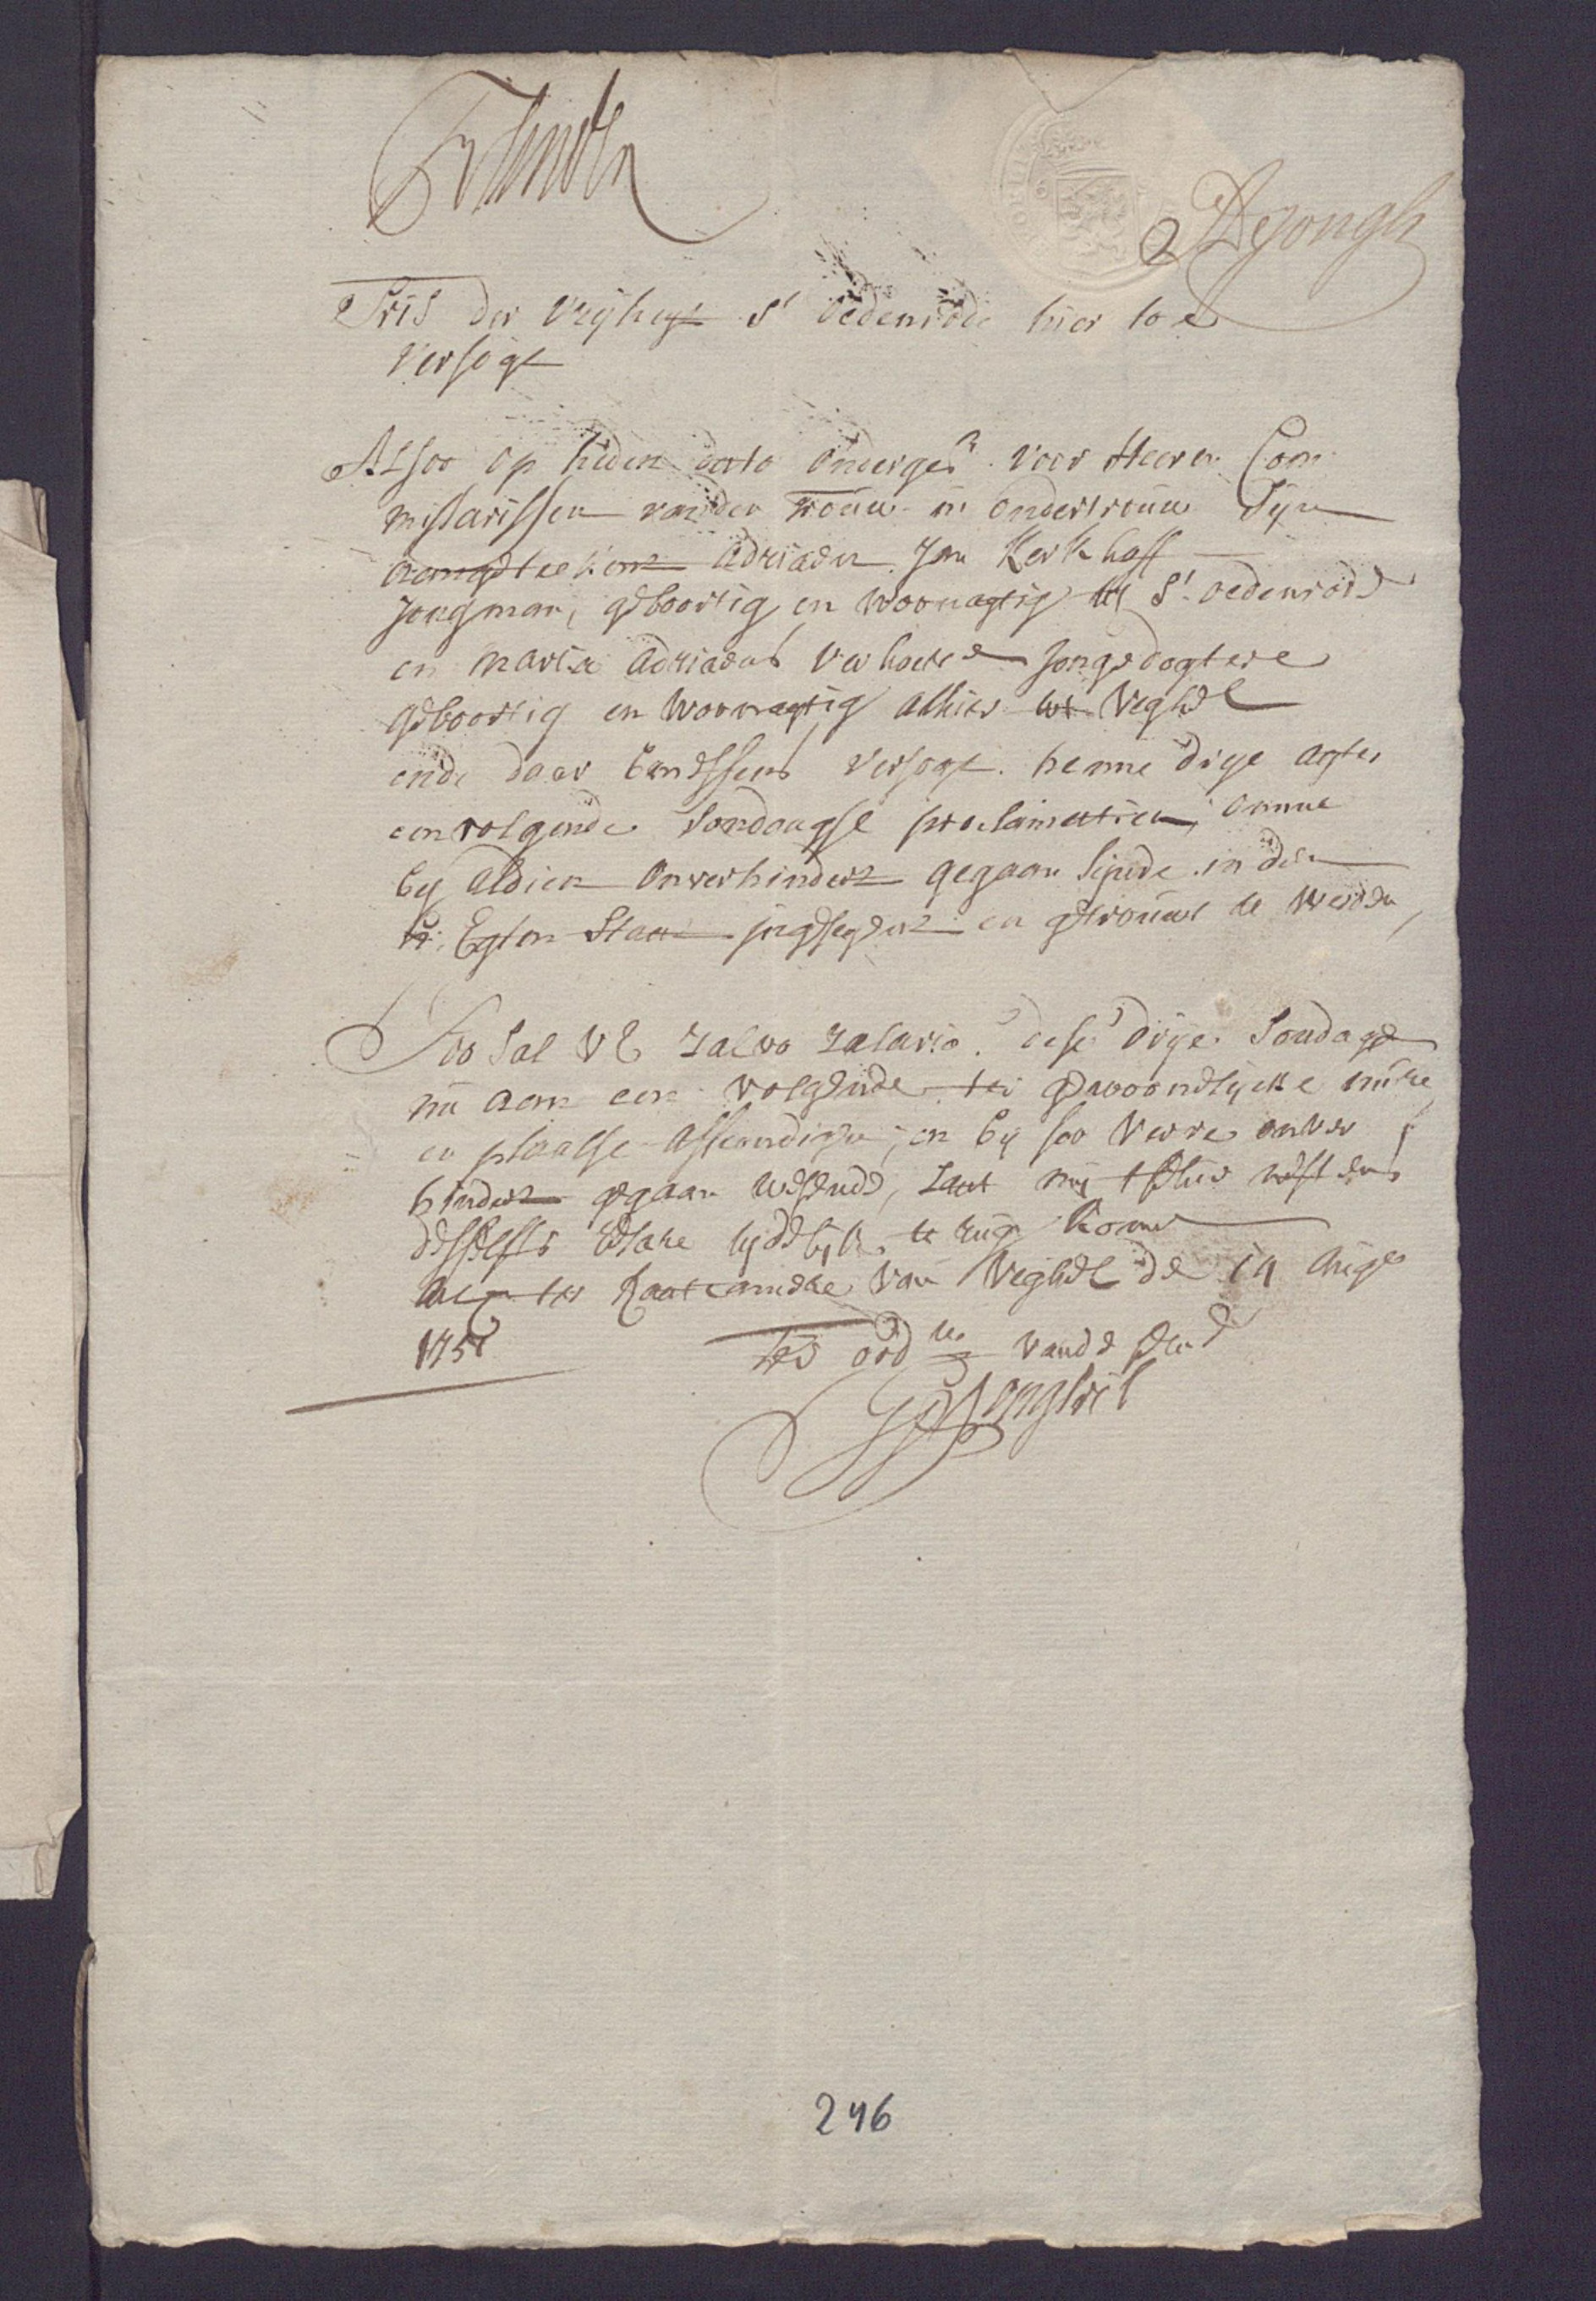 DeJongh
der Vrijheyt St oedenrode hier toe
versogt
Alsoo op heden dato onderges voor Heeren Com
missarissen vanden trouw in ondertrouw sijn
aangeteekent Adriaen Jan Kerkhoff
Jongman, geboortig en woonagtig tot St. oedenrode
en Maria Adriaens Verhoeve Jongedogtere
geboortig en woonagtig alhier tot Veghel
ende daar benessens versogt henne drye agter
eenvolgende sondaagse proclamatien, omme
bij aldien onverhindert gegaan sijnde in den
H: Egten Staat ingesegent en getrouwt te werden,
Soo sal UE salvo salario dese drye sondage
nu aen een volgende ter gewoondlijcke uure
en plaatse affcondigen, en bij soo verre onver
hindert gegaan wesende, laet mij
desselfs relaes tijdelijk te rug komen
Actum ter Raatcamere van Veghel de 14 Augs
175
Ter ordtie vande
246